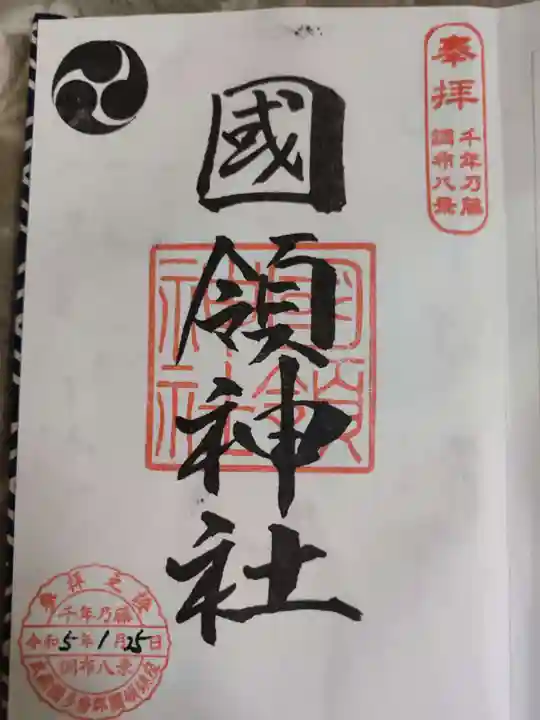 奉拝
千年乃藤
調布八景
國領神社
國領
神社
参拝之證
千年乃藤
令和5年1月25日
調布八景